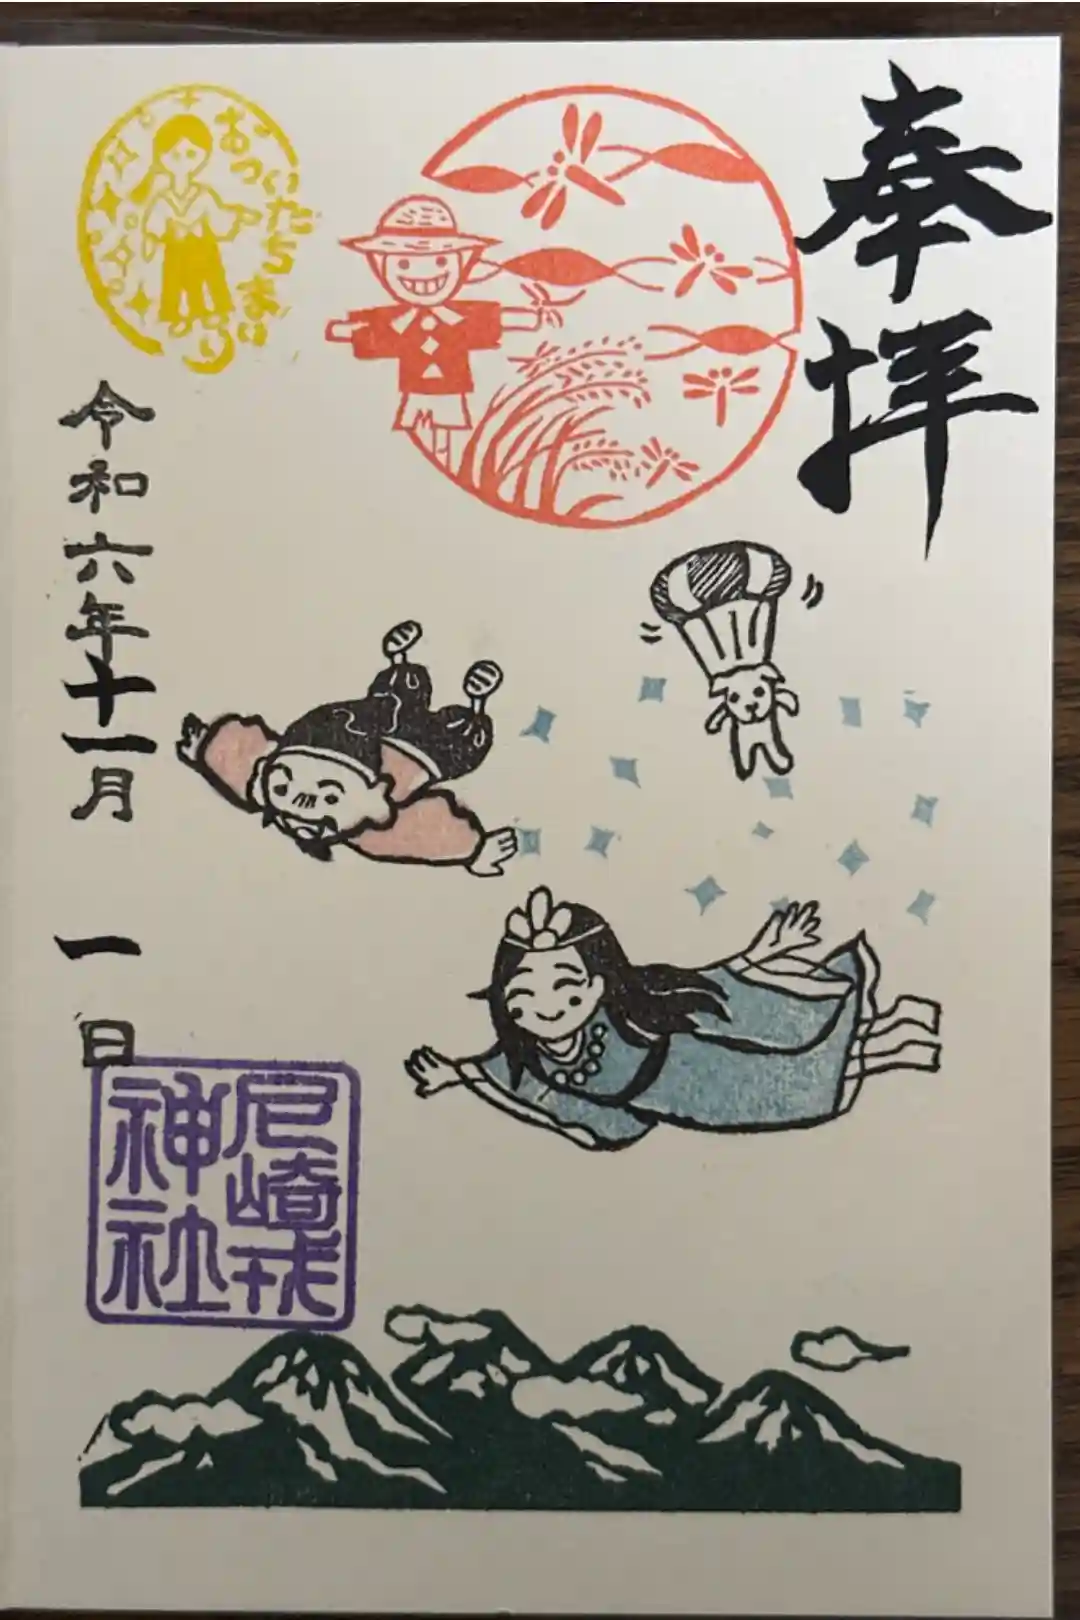 奉拝
おついたちまいり
令和六年十一月
一日
尼崎戎
神社